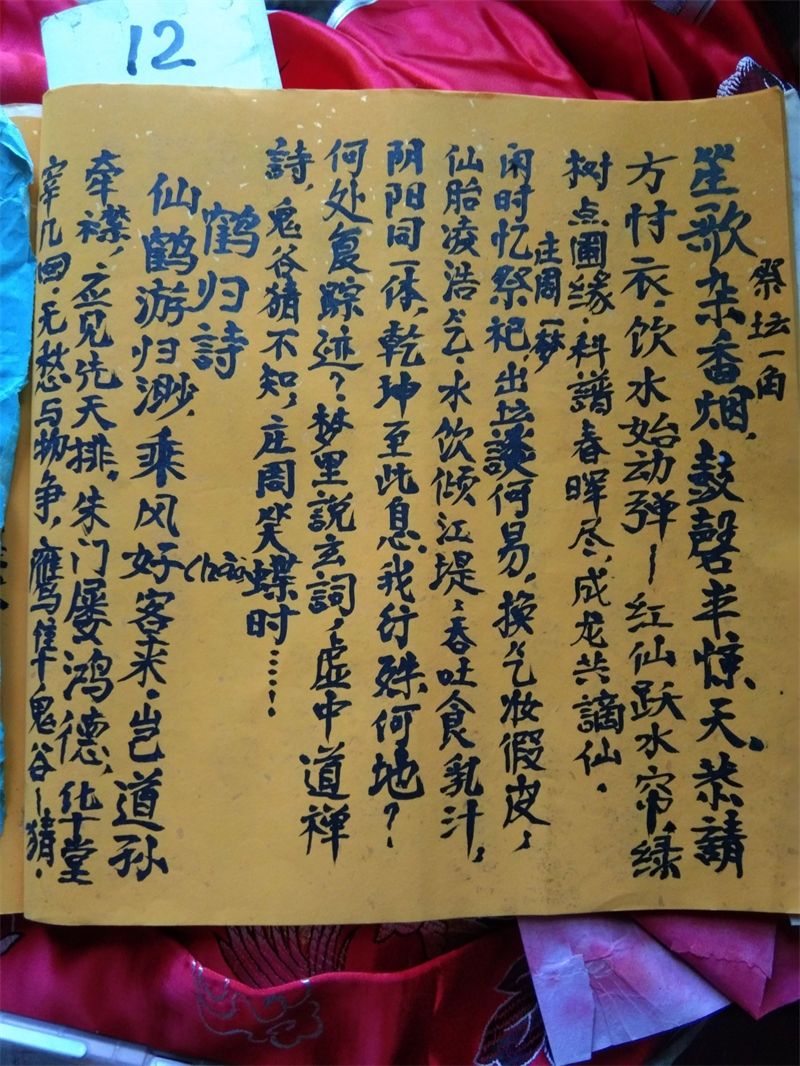 12
祭坛一角
笙歌杂香烟,鼓磬丰惊天、恭請
方忖衣、饮水始动弹~红仙跃水帘,绿
树点圃缘·科譜春晖尽,成龙共謫仙.
庄周一梦
闲时忆祭祀,出坛談何易,换气妆假皮,
仙胎凌浩气、水饮倾江堤;吞吐食乳汁,
阴阳同一体,乾坤至此息,我行殊何地?
何处复踪迹?梦里說玄詞,虚中道禅
詩,鬼谷猜不知,庄周笑蝶时……!
鹤归詩
仙鹤游归渺,乘风好客来·岂道孙
牵襟,应见先天排,朱门屡鸿德,华堂
宰几回·无愁与物争,鹰隹鬼谷~猜.